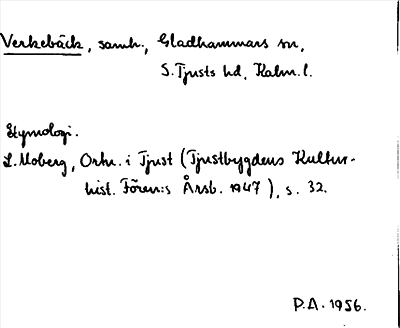 Verkebäck, samh., Gladhammars sn,
S. Tjusts hd, Kalm. l.
Etymologi.
L. Moberg, Ortn. i Tjust (Tjustbygdens Kultur-
hist. Fören:s Årsb. 1947), s. 32.
P.A. 1956.